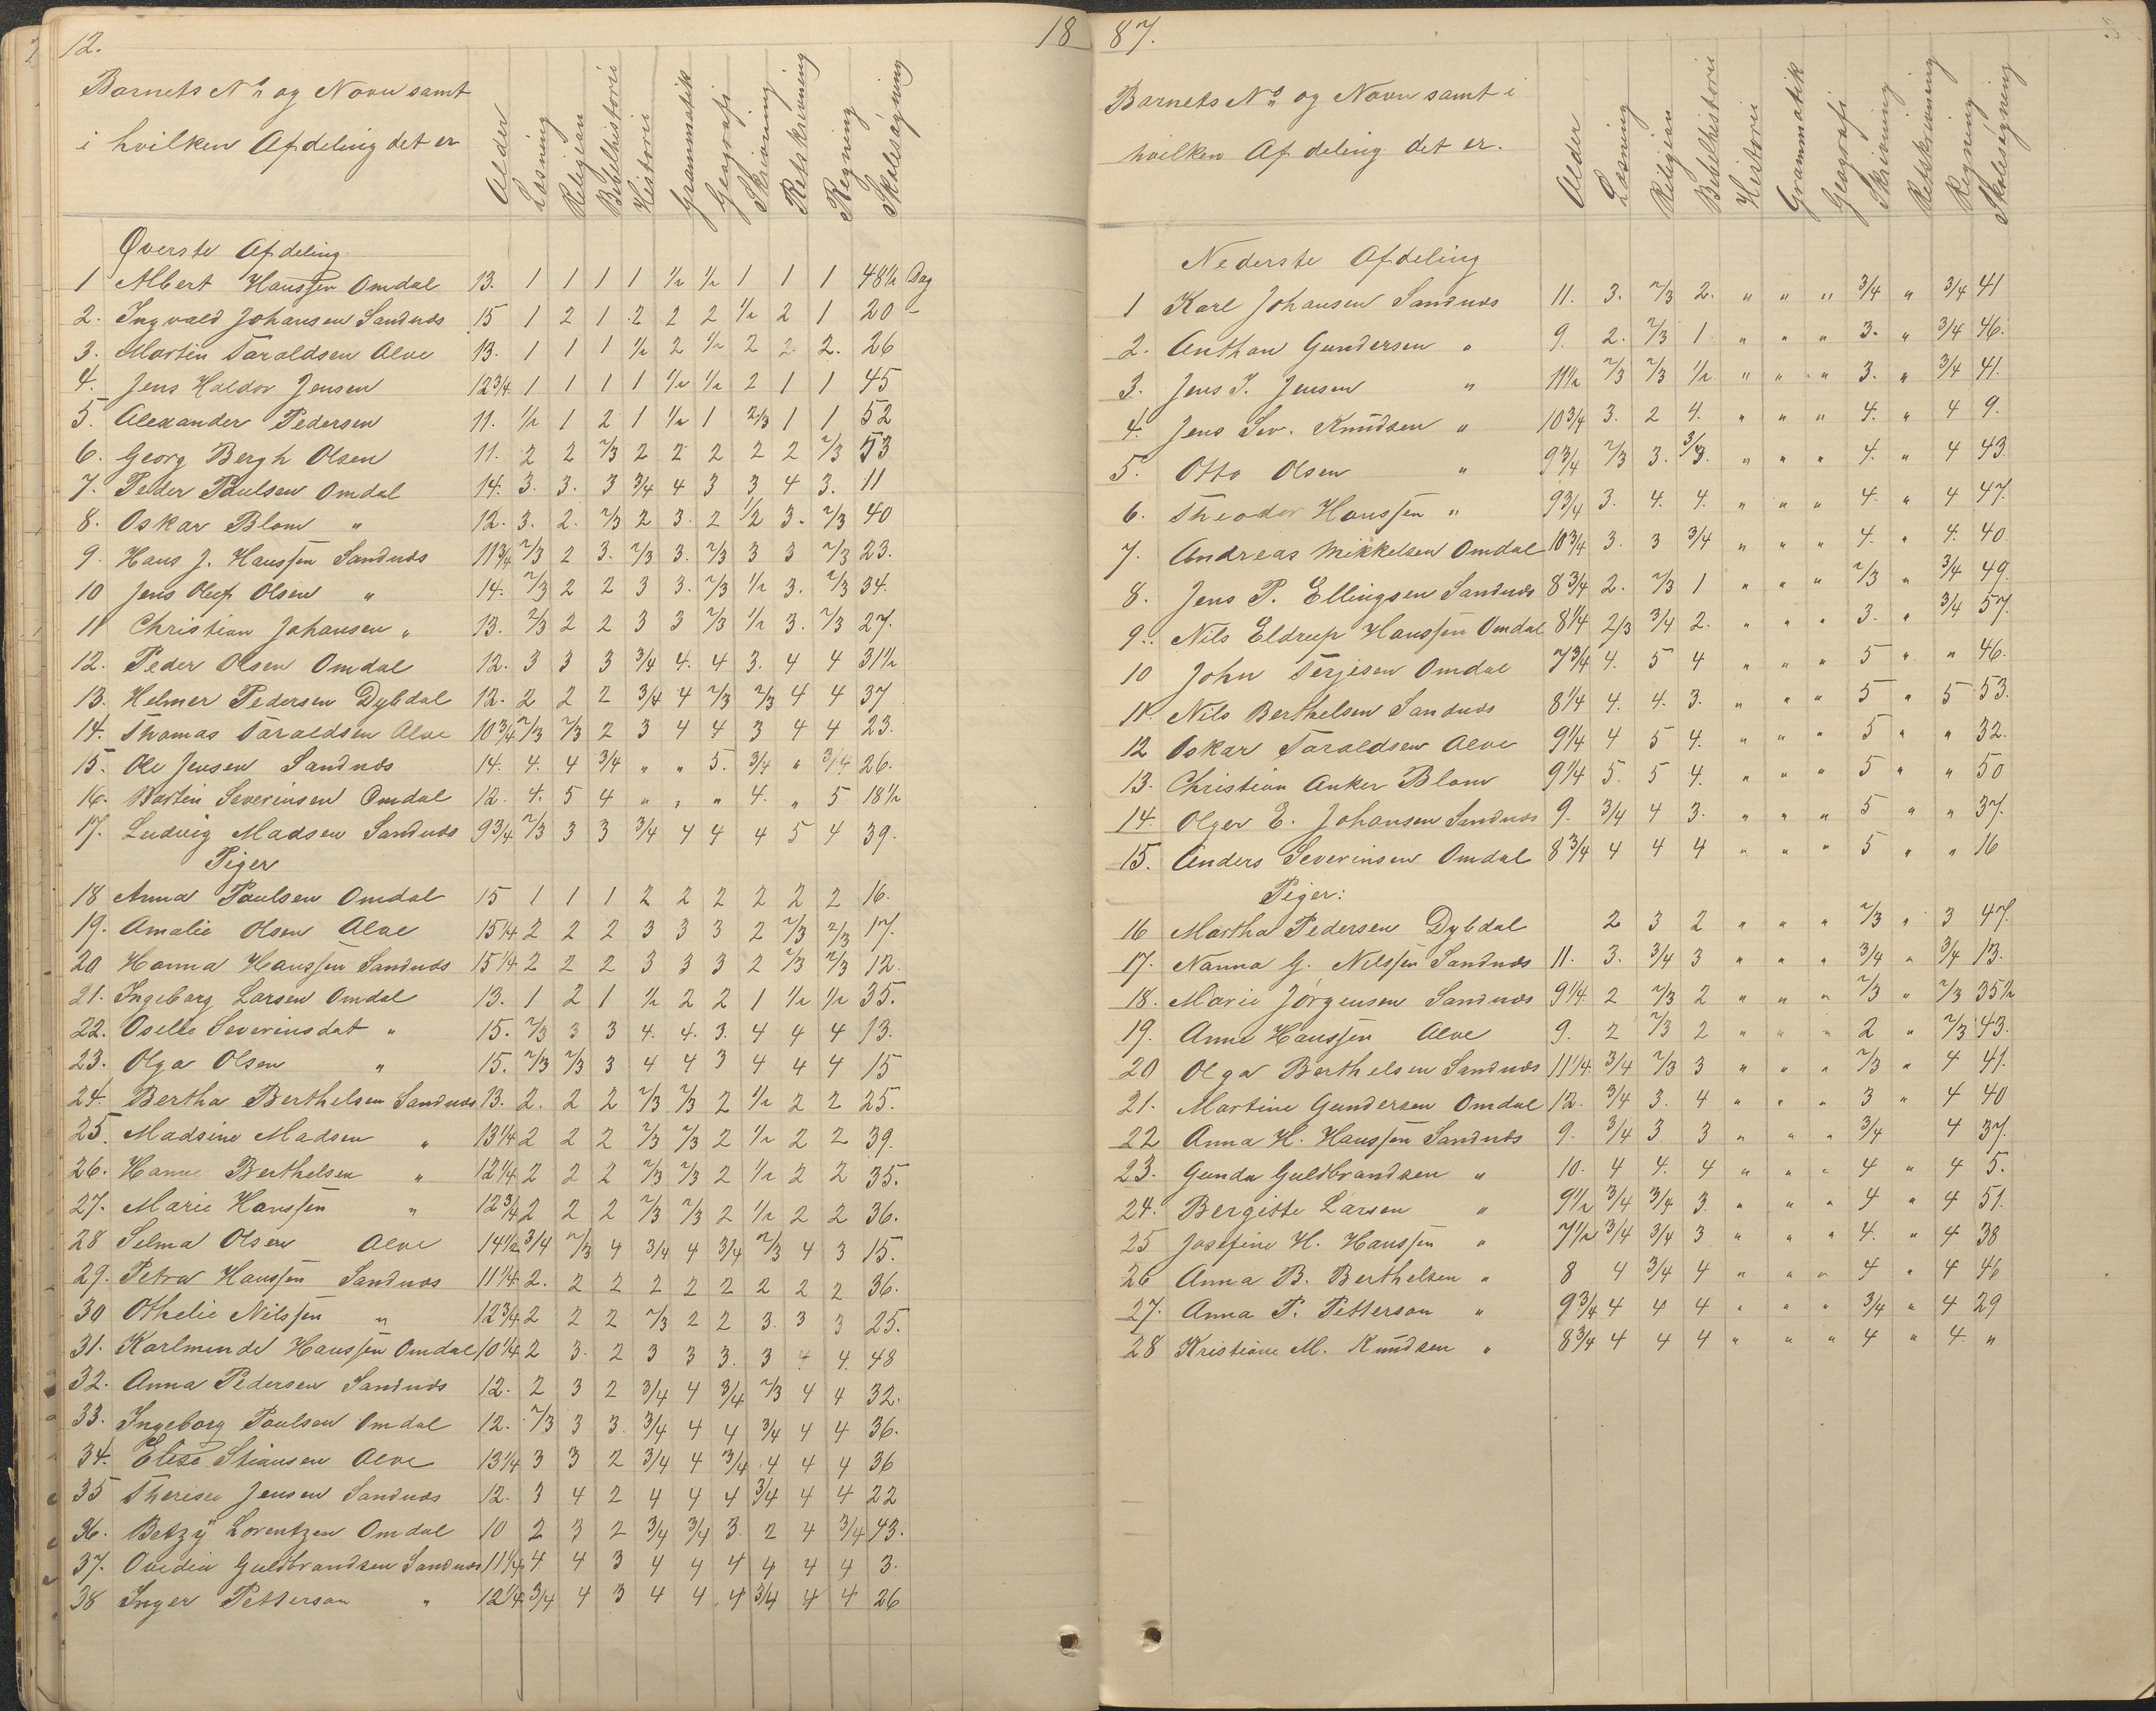 12.
18
Barnets No og Navn samt
i hvilken Afdeling det er
Alder Læsning Religion Bibelhistorie Historie Grammatik Geografi Skrivning Retskrivning Regning Skolesøgning
Øverste Afdeling
1 Albert Hanssen Omdal 13. 1 1 1 1 1/2 1/2 1 1 1 48 1/2 Dag
2. Ingvald Johansen Sandnæs 15 1 2 1 2 2 2 1/2 2 1 20 -
3. Martin Taraldsen Alve 13. 1 1 1 1/2 2 1/2 2 2. 2. 26
4. Jens Haldor Jensen 12 3/4 1 1 1 1 1/2 1/2 2 1 1 45
5. Alexander Pedersen 11. 1/2 1 2 1 1/2 1 2/3 1 1 52
6. Georg Bergh Olsen 11. 2 2 2/3 2 2 2 2 2 2/3 53
7. Peder Paulsen Omdal 14. 3. 3. 3 3/4 4 3 3 4 3. 11
8. Oskar Blom " 12. 3. 2. 2/3 2 3. 2 1/2 3. 2/3 40
9. Hans J. Hanssen Sandnæs 11 3/4 2/3 2 3. 2/3 3. 2/3 3 3 2/3 23.
10 Jens Oluf Olsen " 14. 2/3 2 2 3 3. 2/3 1/2 3. 2/3 34.
11 Christian Johansen " 13. 2/3 2 2 3 3 2/3 1/2 3. 2/3 27.
12. Peder Olsen Omdal 12. 3 3 3 3/4 4. 4 3. 4 4 31 1/2
13. Helmer Pedersen Dybdal 12. 2 2 2 3/4 4 2/3 2/3 4 4 37
14. Thomas Taraldsen Alve 10 3/4 2/3 2/3 2 3 4 4 3 4 4 23.
15. Ole Jensen Sandnæs 14. 4. 4 3/4 " " 5. 3/4 " 3/4 26.
16. Martin Severinsen Omdal 12. 4. 5 4 " " " 4. " 5 18 1/2
17. Ludvig Madsen Sandnæs 9 3/4 2/3 3 3 3/4 4 4 4 5 4 39.
Piger
18 Anna Paulsen Omdal 15 1 1 1 2 2 2 2 2 2 16.
19. Amalie Olsen Alve 15 1/4 2 2 2 3 3 3 2 2/3 2/3 17.
20 Hanna Hanssen Sandnæs 15 1/4 2 2 2 3 3 3 2 2/3 2/3 12.
21. Ingeborg Larsen Omdal 13. 1 2 1 1/2 2 2 1 1/2 1/2 35.
22. Oselie Severinsdat " 15. 2/3 3 3 4. 4. 3. 4 4 4 13.
23. Olga Olsen " 15. 2/3 2/3 3 4 4 3 4 4 4 15
24. Bertha Berthelsen Sandnæs 13. 2. 2 2 2/3 2/3 2 1/2 2 2 25.
25. Madsine Madsen " 13 1/4 2 2 2 2/3 2/3 2 1/2 2 2 39.
26. Hanne Berthelsen " 12 1/4 2 2 2 2/3 2/3 2 1/2 2 2 35.
27. Marie Hanssen " 12 3/4 2 2 2 2/3 2/3 2 1/2 2 2 36.
28 Selma Olsen Alve 14 1/2 3/4 2/3 4 3/4 4 3/4 2/3 4 3 15.
29. Petra Hanssen Sandnæs 11 1/4 2. 2 2 2 2 2 2 2 2 36.
30 Othelie Nilssen " 12 3/4 2 2 2 2/3 2 2 3. 3 3 25.
31. Karlminde Hanssen Omdal 10 1/4 2 3. 2 3 3 3. 3 4 4. 48
32. Anna Pedersen Sandnæs 12. 2 3 2 3/4 4 3/4 2/3 4 4 32.
33. Ingeborg Paulsen Omdal 12. 2/3 3 3. 3/4 4 4 3/4 4 4 36.
34. Elise Stiansen Alve 13 1/4 3 3 2 3/4 4 3/4 4 4 4 36
35 Therese Jensen Sandnæs 12. 3 4 2 4 4 4 3/4 4 4 22
36. Betzy Lorentzen Omdal 10 2 3 2 3/4 3/4 3. 2 4 3/4 43.
37. Ovidia Guldbrandsen Sandnæs 11 1/4 4 4 3 4 4 4 4 4 4 3.
38 Inger Petterson " 12 1/4 3/4 4 3 4 4 4 3/4 4 4 26
87.
Barnets No og Navn samt i
hvilken Afdeling det er.
Alder Læsning Religion Bibelhistorie Historie Grammatik Geografi Skrivning Retskrivning Regning Skolesøgning
Nederste Afdeling
1 Karl Johansen Sandnæs 11. 3. 2/3 2. " " " 3/4 " 3/4 41
2. Anthon Gundersen " 9. 2. 2/3 1 " " " 3. " 3/4 46.
3. Jens I. Jensen " 11 1/2 2/3 2/3 1/2 " " " 3. " 3/4 41.
4. Jens Sev. Knudsen " 10 3/4 3. 2 4. " " " 4. " 4 9.
5. Otto Olsen " 9 3/4 2/3 3. 3/3. " " " 4. " 4 43.
6. Theodor Hanssen " 9 3/4 3. 4. 4. " " " 4. " 4 47.
7. Andreas Mikkelsen Omdal 10 3/4 3. 3 3/4 " " " 4. " 4. 40.
8. Jens P. Ellingsen Sandnæs 8 3/4 2. 2/3 1 " " " 2/3 " 3/4 49.
9. Nils Eldrup Hanssen Omdal 8 1/4 2/3 3/4 2. " " " 3. " 3/4 57.
10 John Terjesen Omdal 7 3/4 4. 5 4 " " " 5 " " 46.
11. Nils Berthelsen Sandnæs 8 1/4 4. 4. 3. " " " 5 " 5 53.
12 Oskar Taraldsen Alve 9 1/4 4 5 4. " " " 5 " " 32.
13. Christian Anker Blom 9 1/4 5. 5 4. " " " 5 " " 50
14. Olger E. Johansen Sandnæs 9. 3/4 4 3. " " " 5 " " 37.
15. Anders Severinsen Omdal 8 3/4 4 4 4 " " " 5 " " 16
Piger:
16 Martha Pedersen Dybdal 2 3 2 " " " 2/3 " 3 47.
17. Nanna G. Nilssen Sandnæs 11. 3. 3/4 3 " " " 3/4 " 3/4 13.
18. Marie Jørgensen Sandnæs 9 1/4. 2 2/3 2 " " " 2/3 " 2/3 35 1/2
19. Anne Hanssen Alve 9. 2 2/3 2 " " " 2 " 2/3 43.
20 Olga Berthelsen Sandnæs 11 1/4. 3/4 2/3 3 " " " 2/3 " 4 41.
21. Martine Gundersen Omdal 12. 3/4 3. 4 " " " 3 " 4 40
22 Anna H. Hanssen Sandnæs 9. 3/4 3 3 " " " 3/4 4 37.
23. Gunda Guldbrandsen " 10. 4 4. 4 " " " 4 " 4 5.
24. Bergitte Larsen " 9 1/2 3/4 3/4 3. " " " 4 " 4 51.
25 Josefine H. Hanssen " 7 1/2 3/4 3/4 3 " " " 4. " 4 38
26 Anna B. Berthelsen " 8 4 3/4 4 " " " 4 " 4 46
27. Anna P. Petterson " 9 3/4 4 4 4 " " " 3/4 " 4 29
28 Kristiane M. Knudsen " 8 3/4 4 4 4 " " " 4 " 4. "